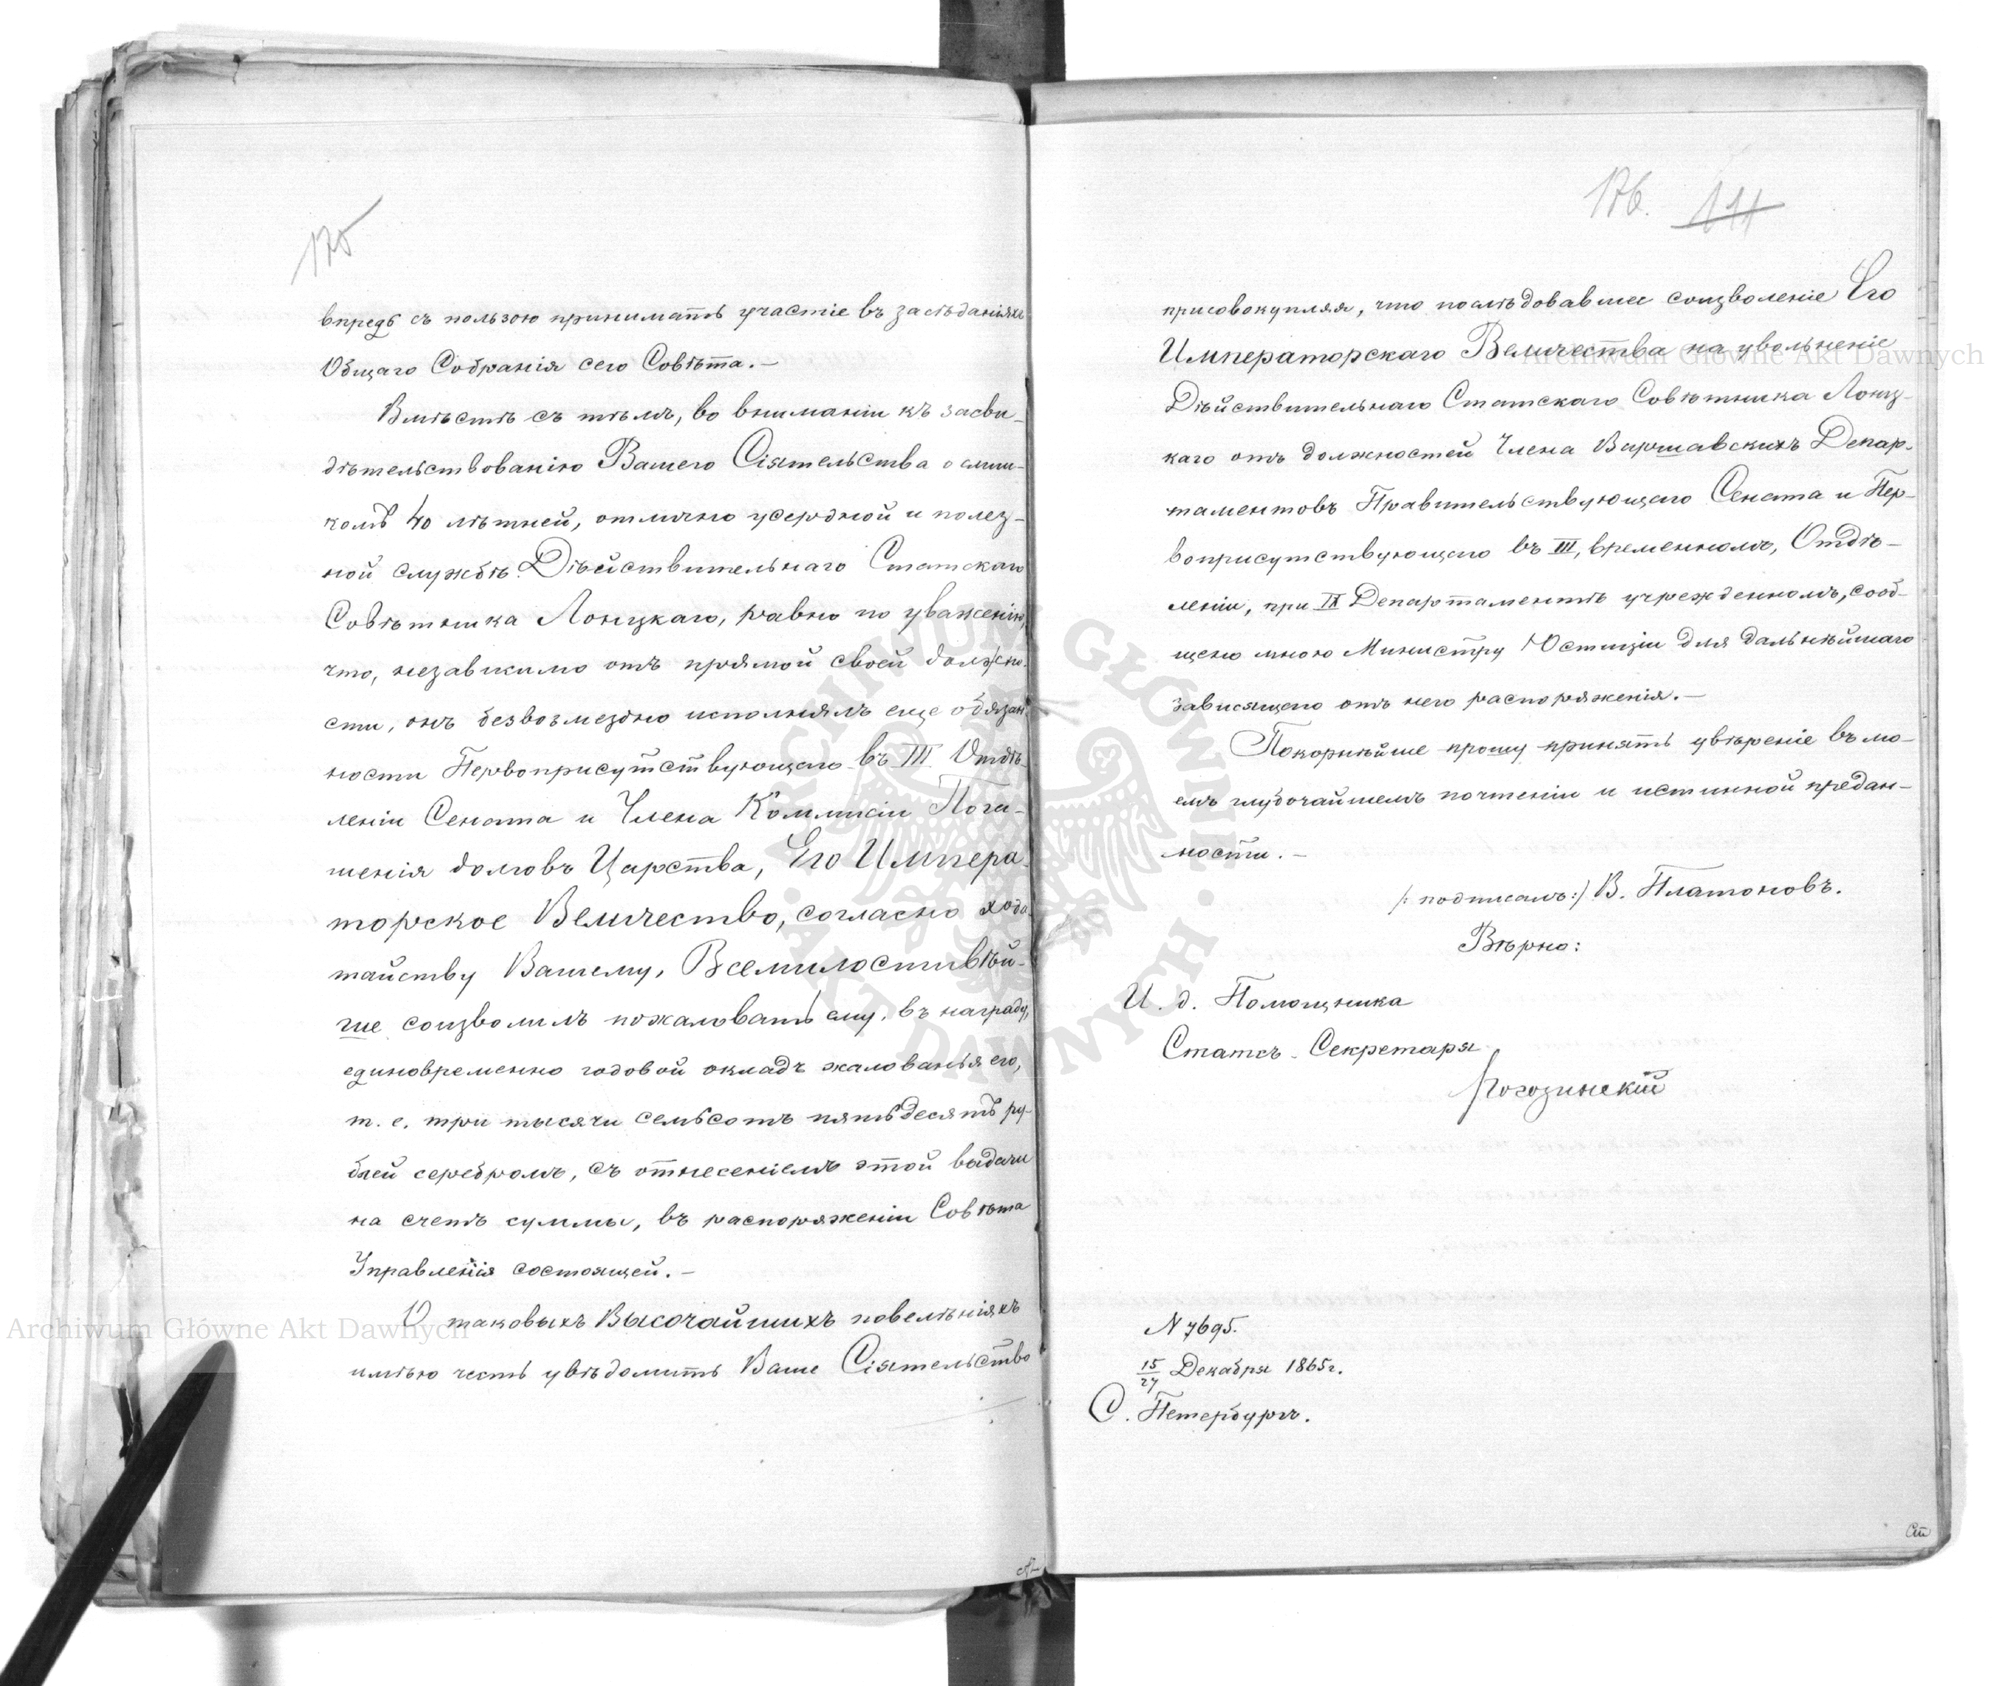 175
впредь съ пользою принимать участіе въ засѣданіяхъ
Общаго Собранія сего Совѣта. —
Вмѣстѣ съ тѣмъ, во вниманіи къ засви-
дѣтельствованію Вашего Сіятельства о слиш-
комъ 40 лѣтней, отлично усердной и полез-
ной службѣ Дѣйствительнаго Статскаго
Совѣтника Лонцкаго, равно по уваженію,
что, независимо отъ прямой своей должно-
сти, онъ безвозмездно исполнялъ еще обязан-
ности Первоприсутствующаго въ III Отдѣ-
леніи Сената и Члена Коммисіи Пога-
шенія долговъ Царства, Его Импера-
торское Величество, согласно хода-
тайству Вашему, Всемилостивѣй-
ше соизволилъ пожаловать ему, въ награду,
единовременно годовой окладъ жалованья его,
т. е. три тысячи семьсотъ пятьдесятъ ру-
блей серебромъ, съ отнесеніемъ этой выдачи
на счетъ суммы, въ распоряженіи Совѣта
Управленія состоящей. —
О таковыхъ Высочайшихъ повелѣніяхъ
имѣю честь увѣдомить Ваше Сіятельство
176. 111
присовокупляя, что послѣдовавшее соизволеніе Его
Императорскаго Величества на увольненіе
Дѣйствительнаго Статскаго Совѣтника Лонц-
каго отъ должностей Члена Варшавскихъ Депар-
таментовъ Правительствующаго Сената и Пер-
воприсутствующаго въ III, временномъ, Отдѣ-
леніи, при IX Департаментѣ учрежденномъ, сооб-
щено мною Министру Юстиціи для дальнѣйшаго
зависящаго отъ него распоряженія. —
Покорнѣйше прошу принять увѣреніе въ мо-
емъ глубочайшемъ почтеніи и истинной предан-
ности. —
/: подписалъ :/ В. Платоновъ.
Вѣрно:
И. д. Помощника
Статсъ-Секретаря
Погозинскій
N 7695.
15/27 Декабря 1865 г.
С. Петербургъ.
Archiwum Główne Akt Dawnych
Archiwum Główne Akt Dawnych
ARCHIWUM GŁÓWNE · AKT DAWNYCH ·